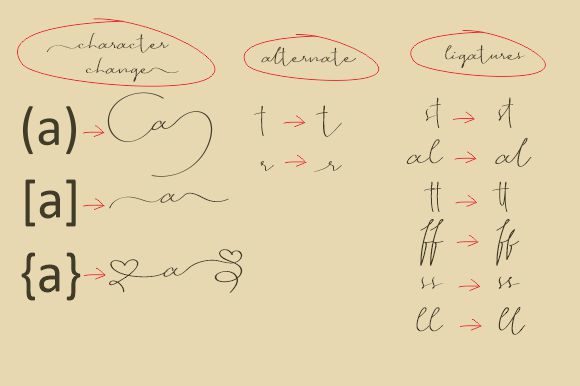 character
change
(a) a
[a] a
{a} a
alternate
t t
r r
ligatures
st st
al al
tt tt
ff ff
ss ss
ll ll